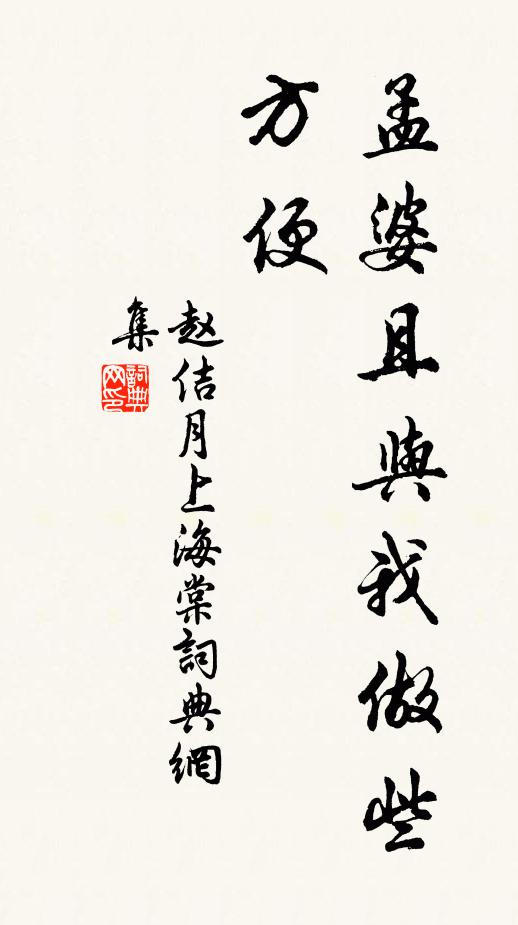 孟婆且與我做些
方便
赵佶月上海棠詞典網
集
詞典
网印